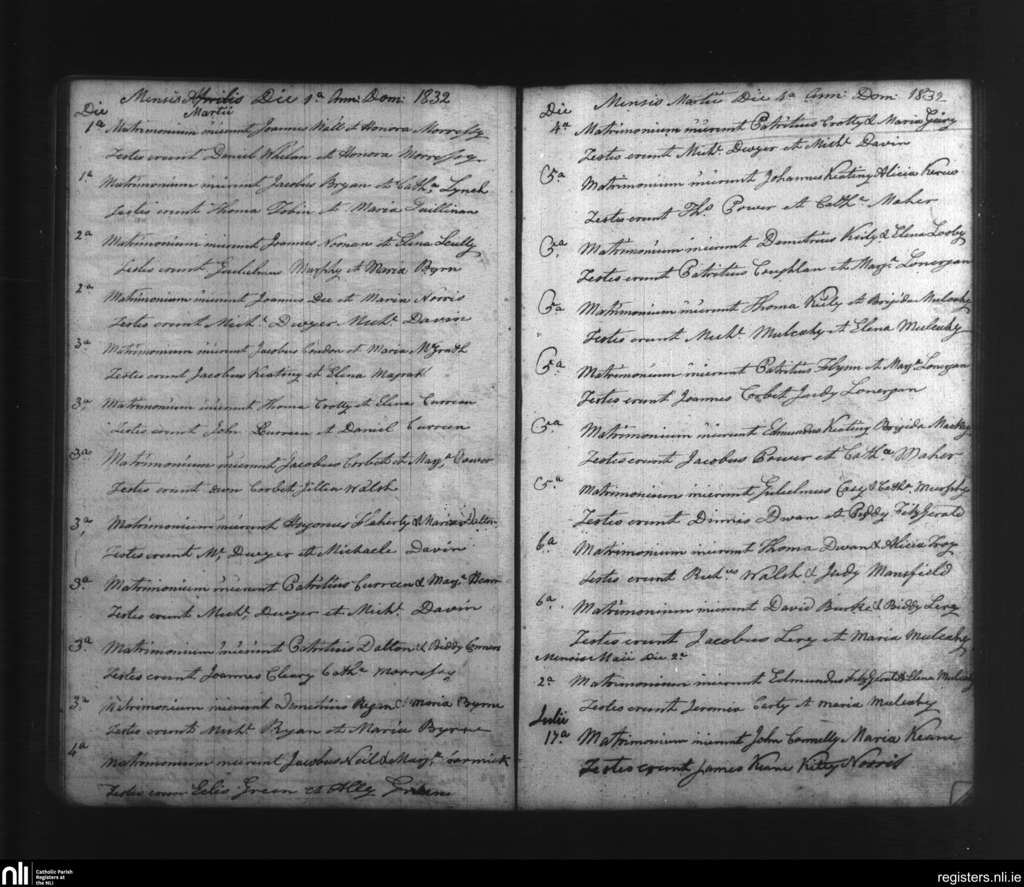 Mensis Aprilis Die 1a Ann: Dom: 1832
Martii
Die
1a Matrimonium inierunt Joannes Wall et Honora Morressy
Testes erunt Daniel Whelan et Honora Morressy
1a Matrimonium inierunt Jacobus Bryan et Cath:a Lynch
Testes erunt Thoma Tobin et Maria
2a Matrimonium inierunt Joannes Noonan et Elena Scully
Testes erunt Gulielmus Murphy et Maria Byrn
2a Matrimonium inierunt Joannes Dee et Maria Norris
Testes erunt Mich:l Dwyer Mich:l Davin
3a Matrimonium inierunt Jacobus Condon et Maria McGrath
Testes erunt Jacobus Keating et Elena
3a Matrimonium inierunt Thoma Crotty et Elena Curreen
Testes erunt John Curreen et Daniel Curreen
3a Matrimonium inierunt Jacobus Corbet et Marg:a Power
Testes erunt Corbet Walsh
3a Matrimonium inierunt Flaherty & Maria Dalton
Testes erunt Mr Dwyer et Michaele Davin
3a Matrimonium inierunt Patritius Curreen & Marg:a
Testes erunt Mich:l Dwyer et Mich:l Davin
3a Matrimonium inierunt Patritius Dalton & Biddy Connors
Testes erunt Joannes Cleary Cath:a Morressy
3a Matrimonium inierunt Demetrius Ryan & Maria Byrne
Testes erunt Mich:l Ryan et Maria Byrne
4a Matrimonium inierunt Jacobus Neil & Marg:t
Testes erunt Green et Ally Green
Mensis Martii Die 4a Ann: Dom: 1832
Die
4a Matrimonium inierunt Patritius Crotty & Maria Geary
Testes erunt Mich:l Dwyer et Mich:l Davin
5a Matrimonium inierunt Johannes Keating Alicia
Testes erunt Tho:s Power et Cath:a Maher
5a Matrimonium inierunt Demetrius Kiely & Elena Looby
Testes erunt Patritius Coughlan et Marg:t Lonergan
5a Matrimonium inierunt Thoma Kiely et Brigida Mulcahy
Testes erunt Mich:l Mulcahy et Elena Mulcahy
5a Matrimonium inierunt Patritius Flynn et Marg:a Lonergan
Testes erunt Joannes Corbet Judy Lonergan
5a Matrimonium inierunt Edmundus Keating Brigida Mackey
Testes erunt Jacobus Power et Cath:a Maher
5a Matrimonium inierunt Gulielmus Casey & Cath:a Murphy
Testes erunt Dinnis Dwan et Biddy FitzGerald
6a Matrimonium inierunt Thoma Dwan & Alicia Troy
Testes erunt Walsh & Judy Mansfield
6a Matrimonium inierunt David Burke & Biddy Lery
Testes erunt Jacobus Lery et Maria Mulcahy
Mensis Maii Die 2a
2a Matrimonium inierunt Edmundus FitzGerald & Elena Mulcahy
Testes erunt Jeromia Carty et Maria Mulcahy
Julii
17a Matrimonium inierunt John Connelly Maria Keane
Testes erunt James Keane Kitty Norris
nli
Catholic Parish
Registers at
the NLI
registers.nli.ie